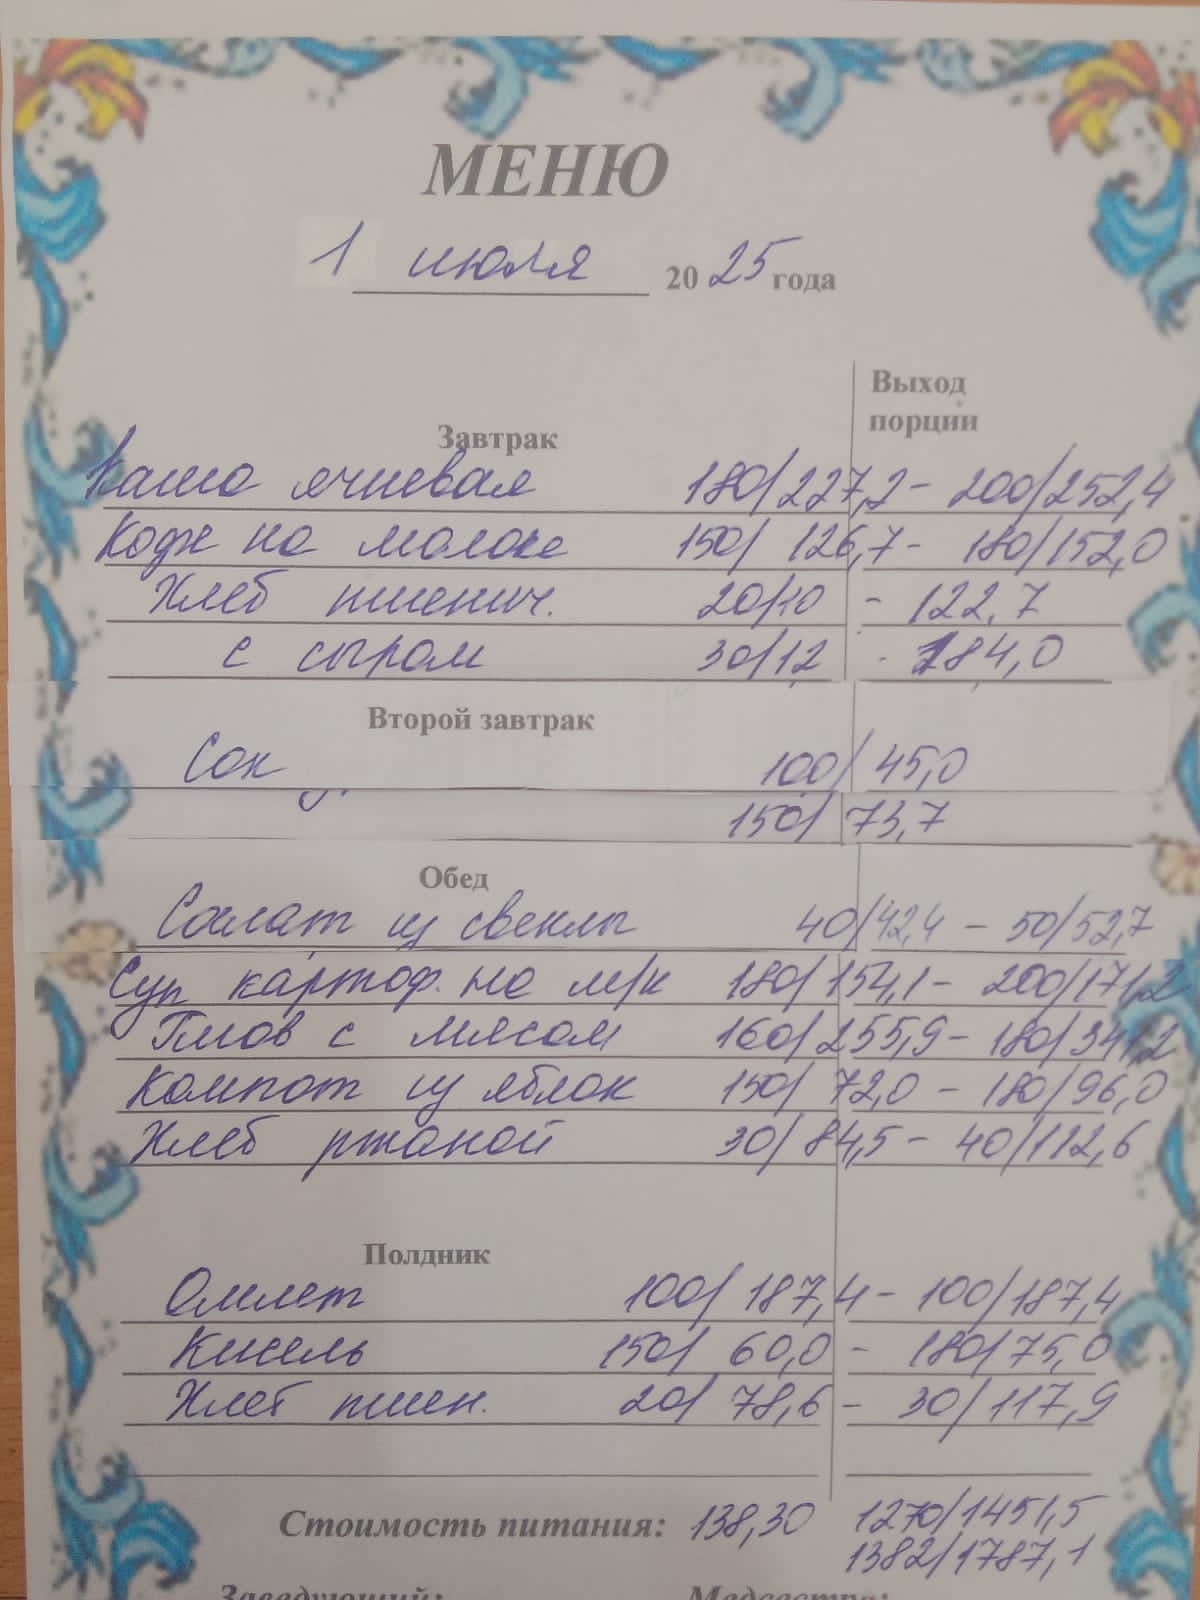 МЕНЮ
1 июля 2025 года
Выход
порции
Завтрак
Каша ячневая 180/227,2 - 200/252,4
Кофе на молоке 150/126,7 - 180/152,0
Хлеб пшенич. 20/10 - 122,7
с сыром 30/12 - 184,0
Второй завтрак
Сок 100/45,0
150/73,7
Обед
Салат из свеклы 40/42,4 - 50/52,7
Суп картоф. на м/к 180/154,1 - 200/171,2
Плов с мясом 160/255,9 - 180/341,2
Компот из яблок 150/72,0 - 180/96,0
Хлеб ржаной 30/84,5 - 40/112,6
Полдник
Омлет 100/187,4 - 100/187,4
Кисель 150/60,0 - 180/75,0
Хлеб пшен. 20/78,6 - 30/117,9
Стоимость питания: 138,30 1270/1451,5
1382/1787,1
Заведующий: Медсестра: